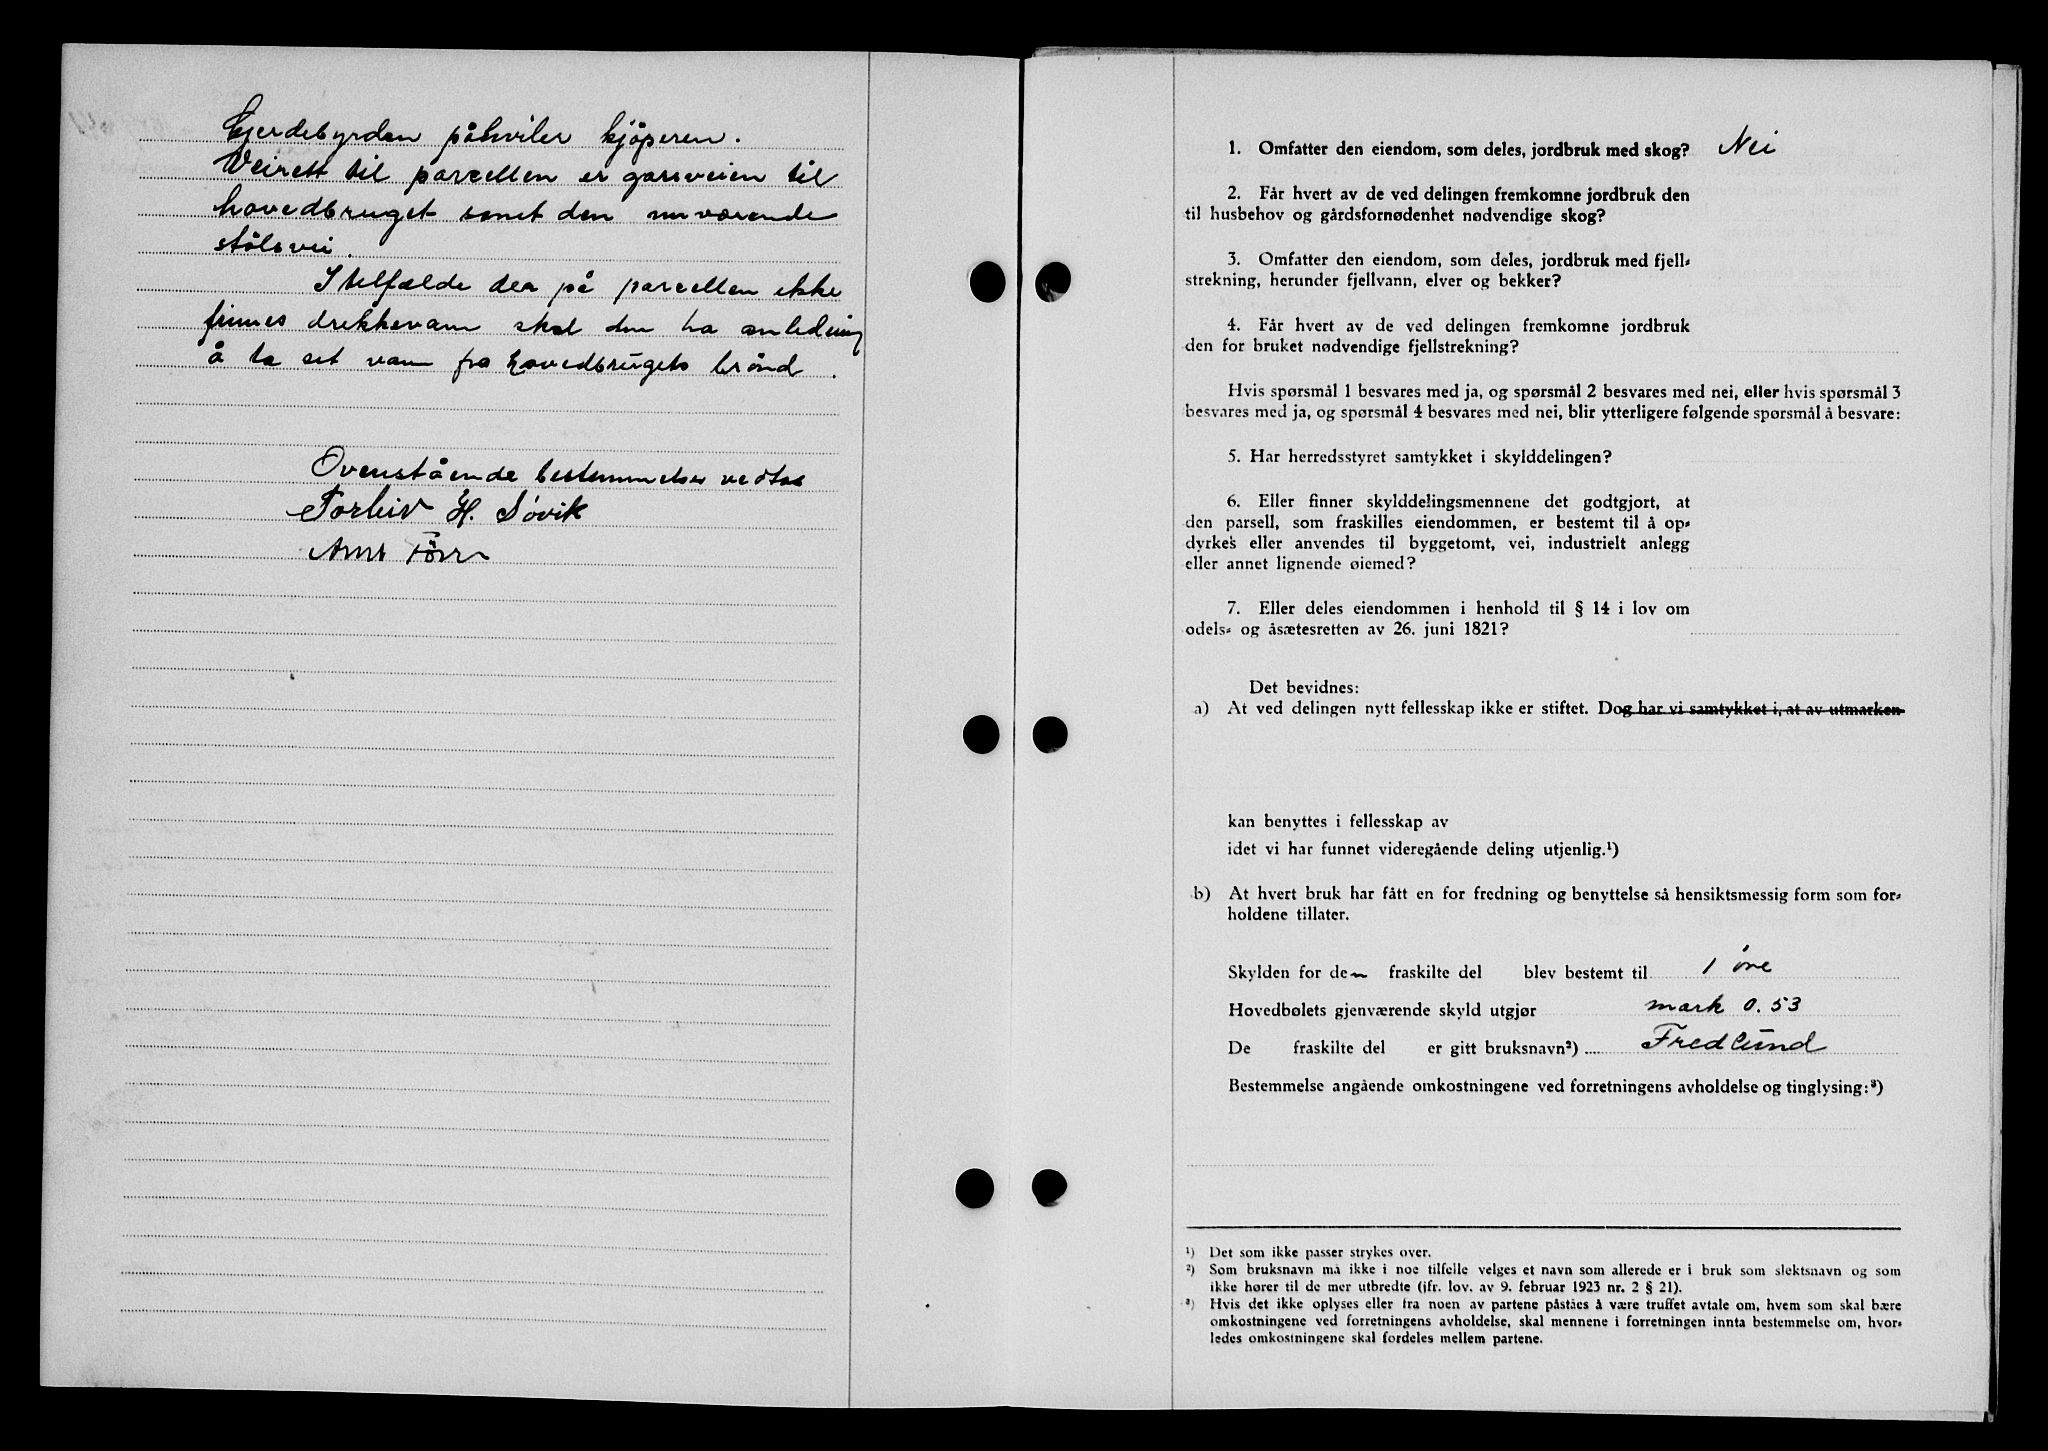 Gjerdebyrden påhviler kjöperen.
Veirett til parcellen er garsveien til
hovedbruget samt den nuværende
stölsvei.
I tilfælde der på parcellen ikke
finnes drikkevann skal den ha anledning
å ta set vann fra hovedbrugets brönd.
Ovenstående bestemmelser vedtas
Torleiv H. Søvik
1. Omfatter den eiendom, som deles, jordbruk med skog? Nei
2. Får hvert av de ved delingen fremkomne jordbruk den
til husbehov og gårdsfornødenhet nødvendige skog?
3. Omfatter den eiendom, som deles, jordbruk med fjell-
strekning, herunder fjellvann, elver og bekker?
4. Får hvert av de ved delingen fremkomne jordbruk
den for bruket nødvendige fjellstrekning?
Hvis spørsmål 1 besvares med ja, og spørsmål 2 besvares med nei, eller hvis spørsmål 3
besvares med ja, og spørsmål 4 besvares med nei, blir ytterligere følgende spørsmål å besvare:
5. Har herredsstyret samtykket i skylddelingen?
6. Eller finner skylddelingsmennene det godtgjort, at
den parsell, som fraskilles eiendommen, er bestemt til å op-
dyrkes eller anvendes til byggetomt, vei, industrielt anlegg
eller annet lignende øiemed?
7. Eller deles eiendommen i henhold til § 14 i lov om
odels- og åsætesretten av 26. juni 1821?
Det bevidnes:
a) At ved delingen nytt fellesskap ikke er stiftet. Dog har vi samtykket i, at av utmarken
kan benyttes i fellesskap av
idet vi har funnet videregående deling utjenlig.¹)
b) At hvert bruk har fått en for fredning og benyttelse så hensiktsmessig form som for-
holdene tillater.
Skylden for den fraskilte del blev bestemt til 1 öre
Hovedbølets gjenværende skyld utgjør mark 0.53
De fraskilte del er gitt bruksnavn²) Fredlund
Bestemmelse angående omkostningene ved forretningens avholdelse og tinglysing:³)
¹) Det som ikke passer strykes over.
²) Som bruksnavn må ikke i noe tilfelle velges et navn som allerede er i bruk som slektsnavn og som
ikke hører til de mer utbredte (jfr. lov. av 9. februar 1923 nr. 2 § 21).
³) Hvis det ikke oplyses eller fra noen av partene påståes å være truffet avtale om, hvem som skal bære
omkostningene ved forretningens avholdelse, skal mennene i forretningen innta bestemmelse om, hvor-
ledes omkostningene skal fordeles mellem partene.